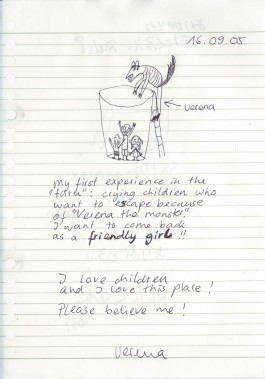 16.09.05
← Verena
My first experience in the
crying children who
want to escape because
of "Verena the monster"
I want to come back
as a friendly girl !!
I love children
and I love this place !
Please believe me !
Verena